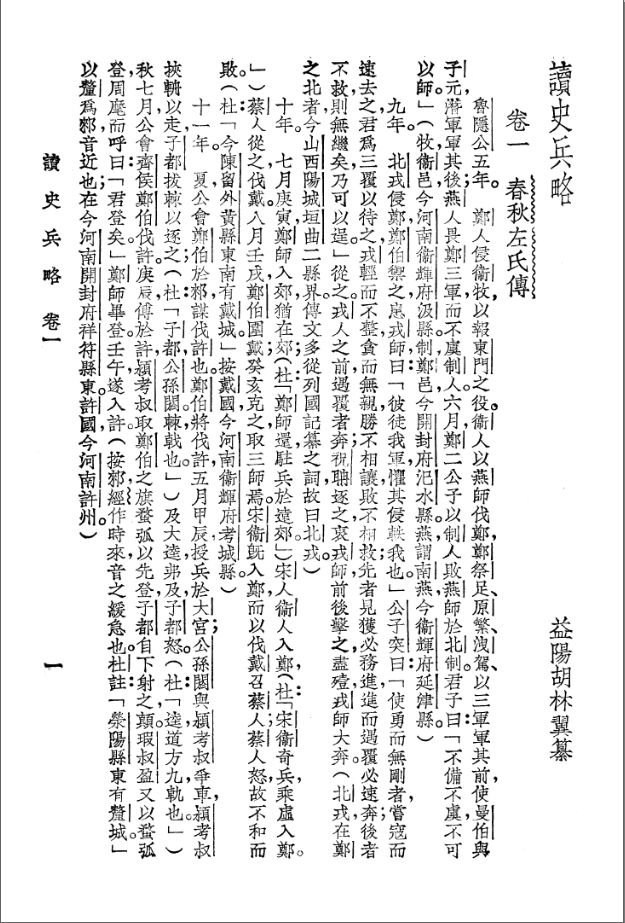 讀史兵略
益陽胡林翼纂
卷一　春秋左氏傳
魯隱公五年。　鄭人侵衞牧，以報東門之役。衞人以燕師伐鄭，鄭祭足、原繁、洩駕、以三軍軍其前，使曼伯與
子元潛軍軍其後。燕人畏鄭三軍，而不虞制人。六月，鄭二公子以制人敗燕師於北制。君子曰：「不備不虞不可
以師。」（牧，衞邑，今河南衞輝府汲縣。制，鄭邑，今開封府汜水縣。燕，謂南燕，今衞輝府延津縣。）
九年。　北戎侵鄭，鄭伯禦之，患戎師，曰：「彼徒我軍，懼其侵軼我也。」公子突曰：「使勇而無剛者，嘗寇而
速去之，君爲三覆以待之。戎輕而不整，貪而無親，勝不相讓，敗不相救；先者見獲，必務進；進而遇覆，必速奔；後者
不救，則無繼矣，乃可以逞。」從之。戎人之前遇覆者奔，祝聃逐之，衷戎師，前後擊之，盡殪，戎師大奔。（北戎，在鄭
之北者，今山西陽城、垣曲二縣界。傳文多從列國記纂之詞，故曰北戎。）
十年。　七月庚寅，鄭師入郊，猶在郊；（杜：「鄭師還，駐兵於遠郊。」）宋人衞人入鄭，（杜：「宋衞奇兵，乘虛入鄭。
」）蔡人從之伐戴。八月壬戌，鄭伯圍戴，癸亥，克之，取三師焉。宋衞旣入鄭，而以伐戴召蔡人；蔡人怒，故不和而
敗。（杜：「今陳留外黃縣東南有戴城。」按戴國，今河南衞輝府考城縣。）
十一年。　夏，公會鄭伯於郲，謀伐許也。鄭伯將伐許，五月甲辰，授兵於大宮；公孫閼與潁考叔爭車，潁考叔
挾輈以走，子都拔棘以逐之；（杜：「子都，公孫閼。棘，戟也。」）及大逵，弗及，子都怒。（杜：「逵，道方九軌也。」）
秋七月，公會齊侯鄭伯伐許。庚辰，傅於許，潁考叔取鄭伯之旗蝥弧以先登，子都自下射之，顛；瑕叔盈又以蝥弧
登，周麾而呼曰：「君登矣。」鄭師畢登。壬午，遂入許。（按郲，經作時來，音之緩急也。杜註：「滎陽縣東有釐城。」
以釐爲郲，音近也；在今河南開封府祥符縣東。許國，今河南許州。）
讀史兵略　卷一
一